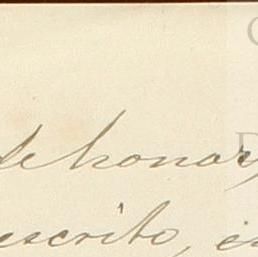 de honor,
escrito, e